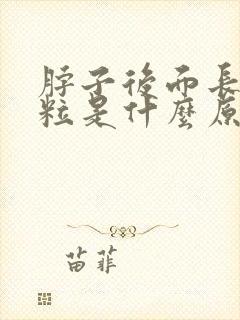 脖子後面長
粒是什麼原
苗菲